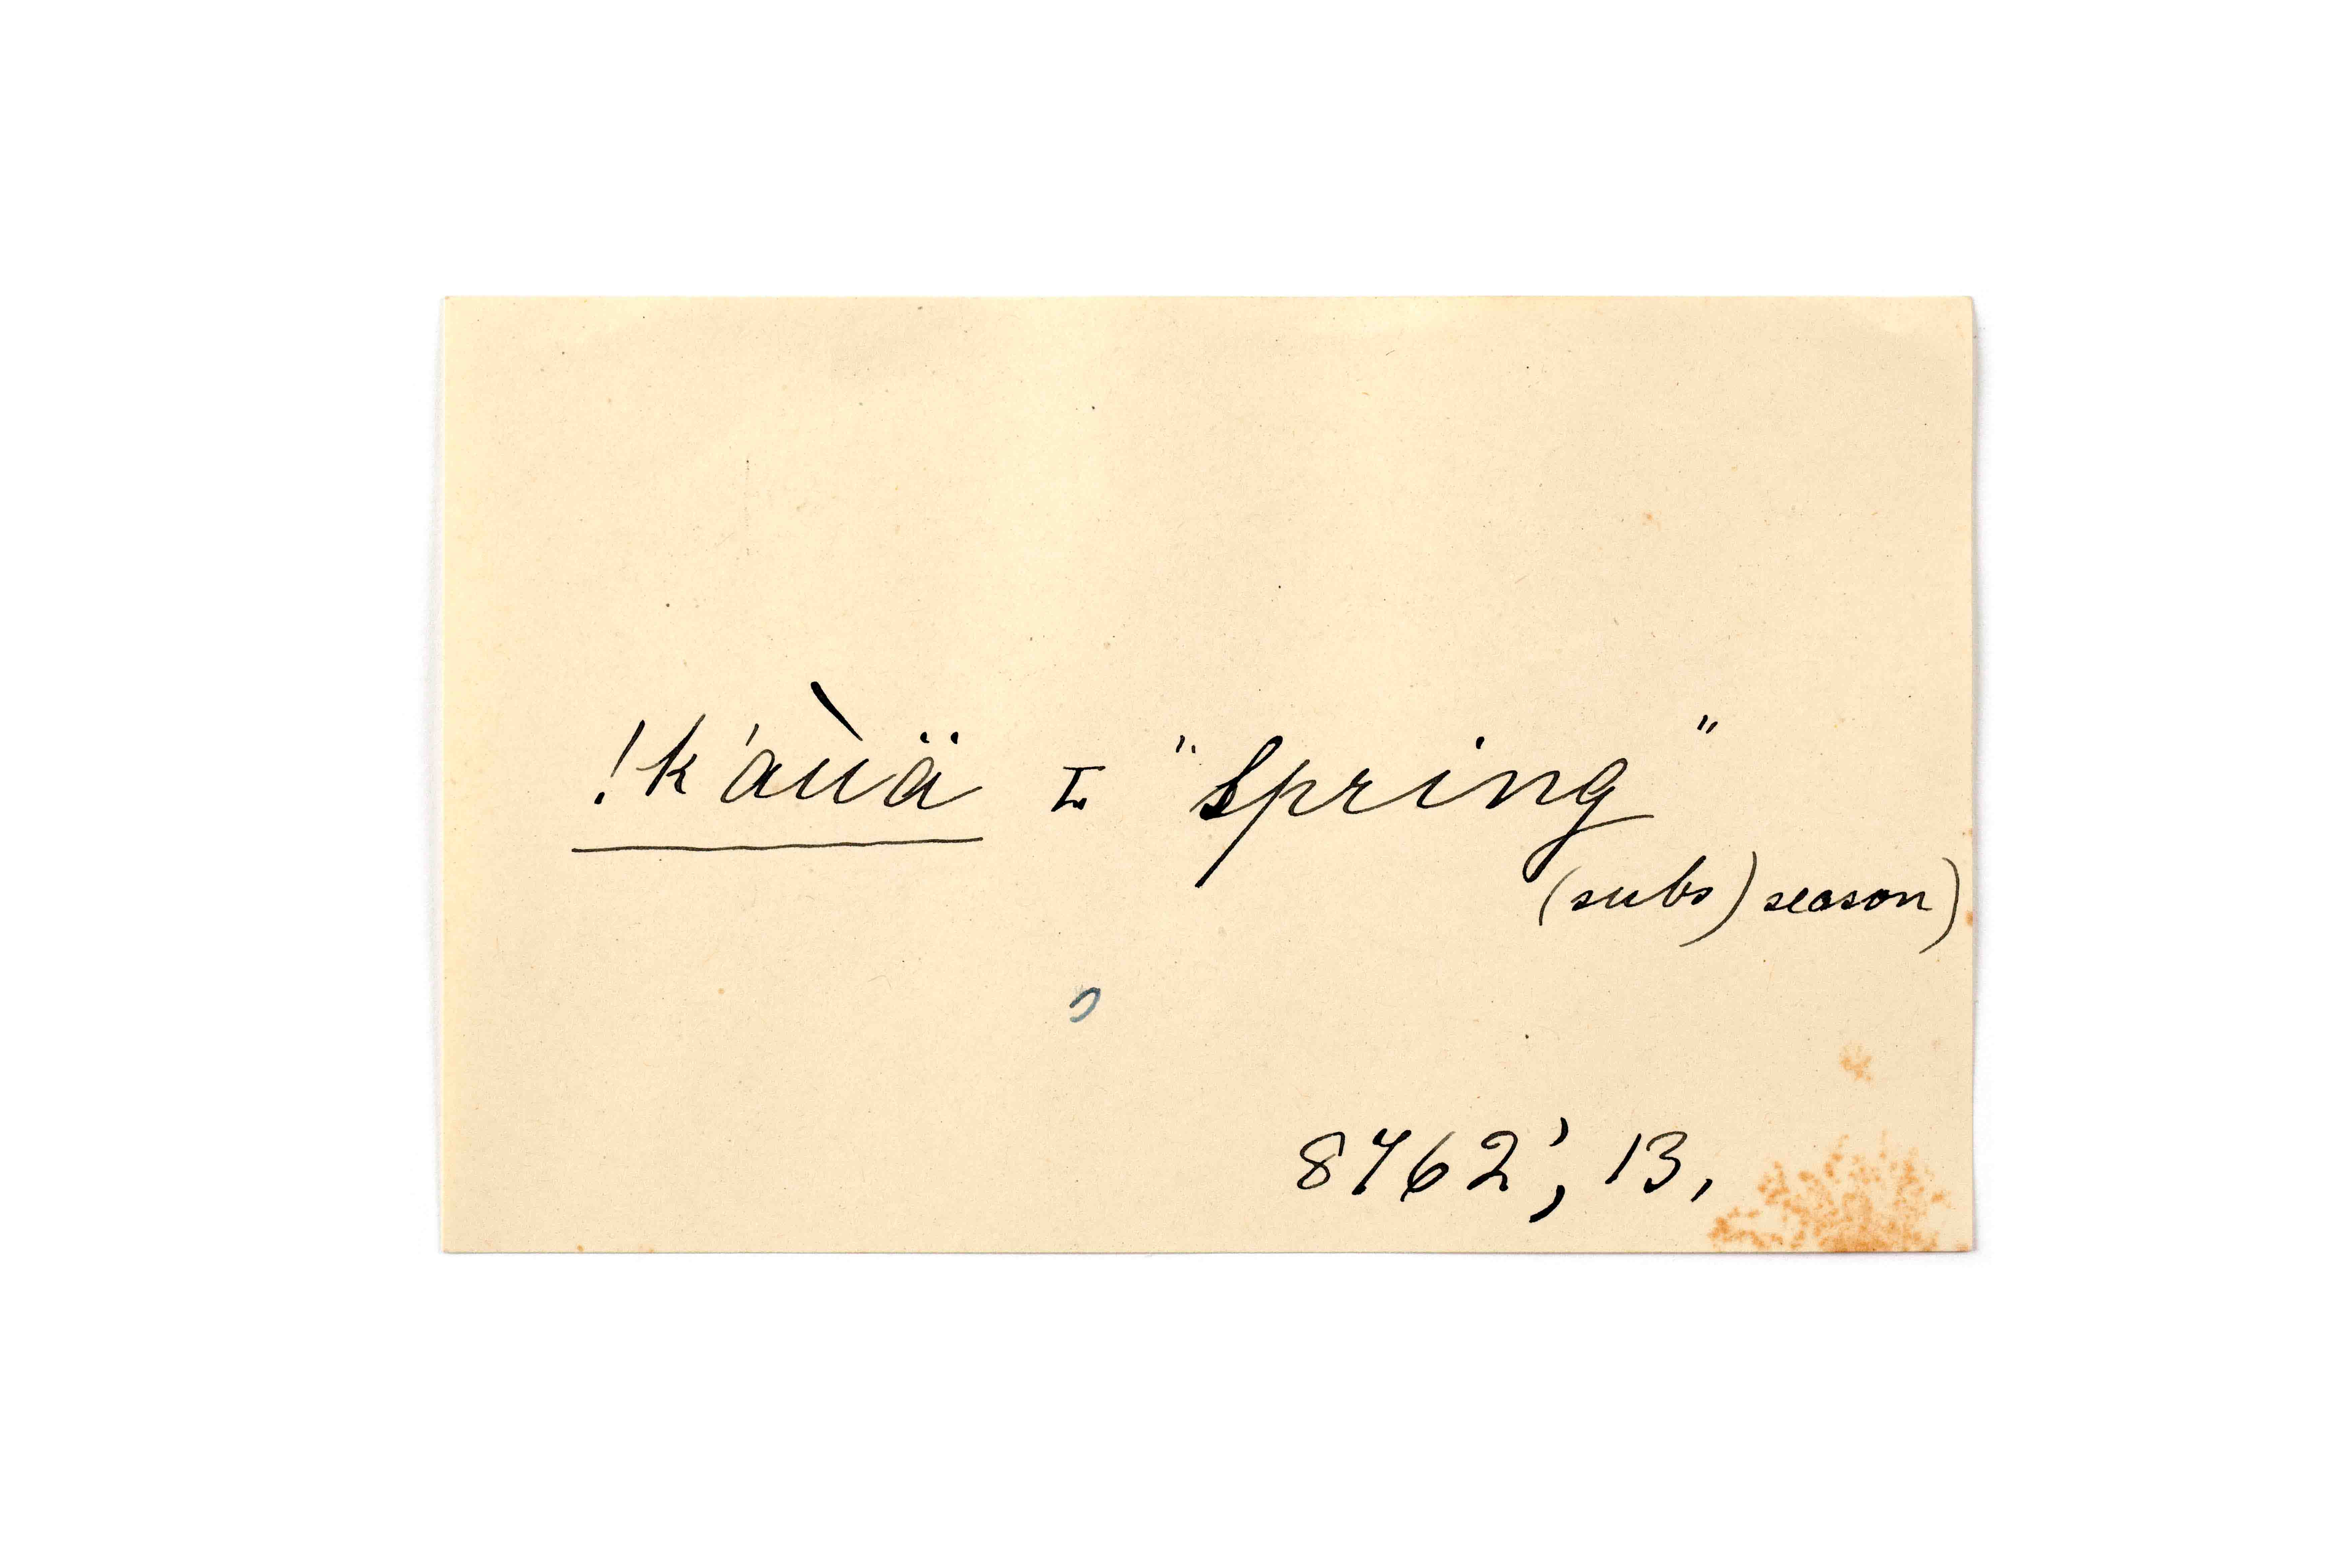 !k'aùä = "Spring"
(subs) season)
8762', 13,